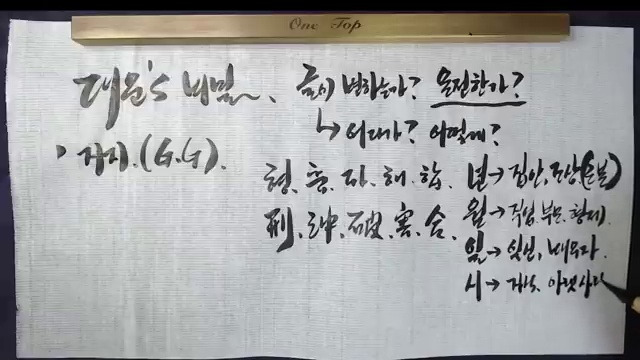 One Top
대운's 비밀~.
글이 변하는가? 운전한가?
↳ 어디가? 어떻게?
, 지지.(G.G).
형. 충. 파. 해. 합.
刑. 沖. 破. 害. 合.
년→집안, 조상(근본)
월→직업, 부모, 형제.
일→당신, 배우자.
시→자식, 아랫사람